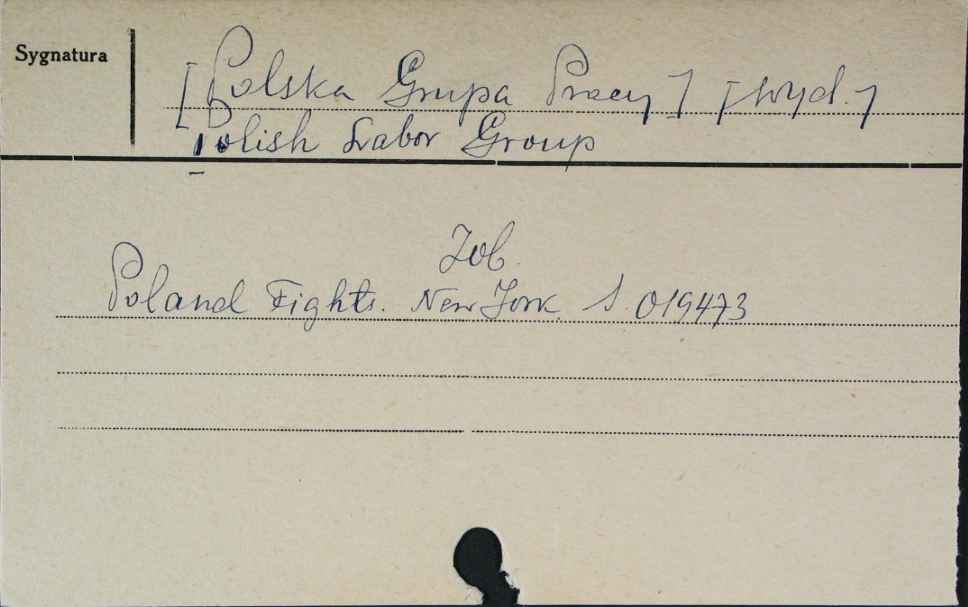 Sygnatura
[Polska Grupa Pracy] [wyd.]
Polish Labor Group
Zob.
Poland Fights. New York. S. 019473